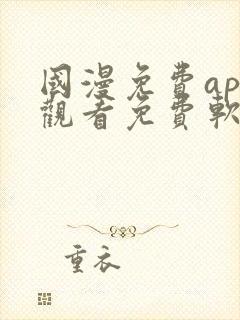 國漫免費ap
觀看免費軟
重衣